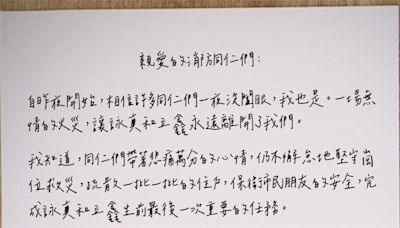 親愛的消防同仁們:
自昨夜開始,相信許多同仁們一夜沒闔眼,我也是。一場無
情的火災,讓詠真和立鑫永遠離開了我們。
我知道,同仁們帶著悲痛萬分的心情,仍不懈怠地堅守崗
位救災,疏散一批一批的住戶,保衛市民朋友的安全,完
成詠真和立鑫生前最後一次重要的任務。